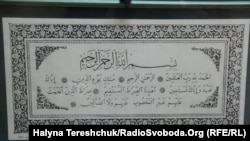 بسم الله الرحمن الرحيم
الحمد لله رب العالمين الرحمن الرحيم ملك يوم الدين إياك
نعبد وإياك نستعين اهدنا الصراط المستقيم صراط الذين أنعمت
عليهم غير المغضوب عليهم ولا الضالين
Halyna Tereshchuk/RadioSvoboda.Org (RFE/RL)